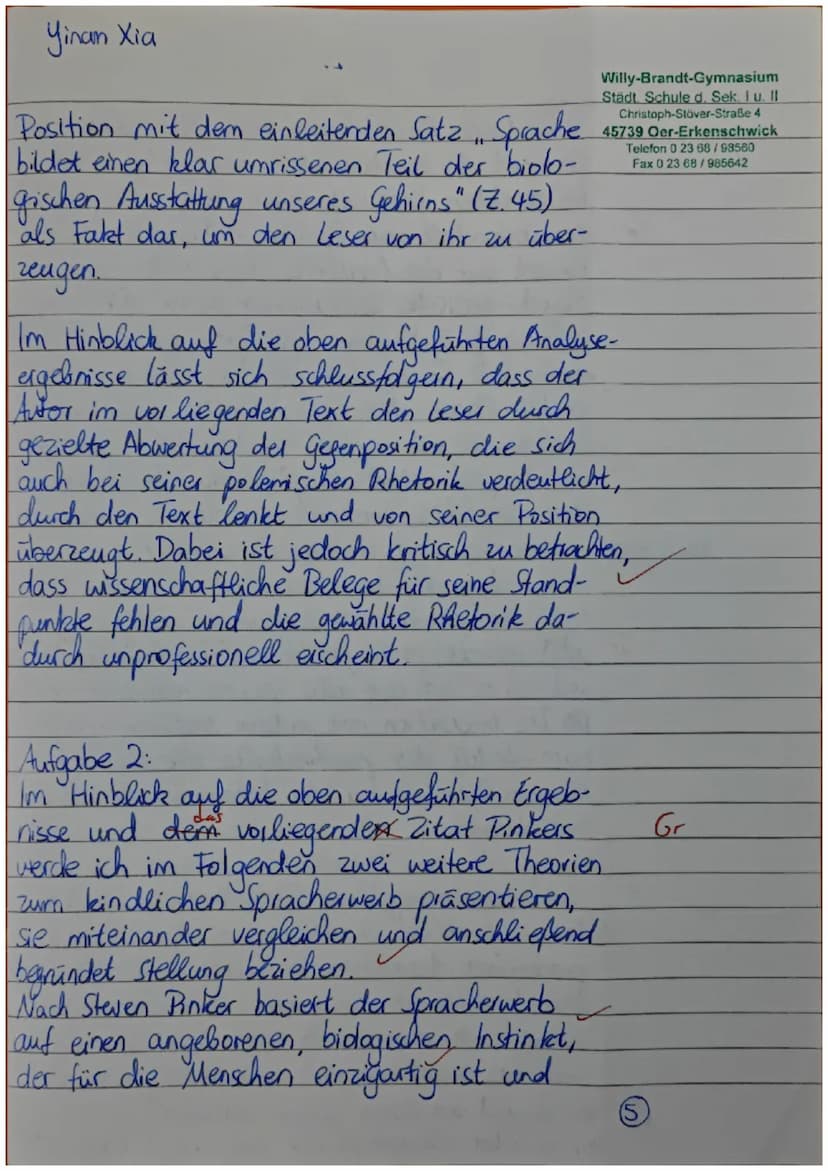 Yinan Xia
Willy-Brandt-Gymnasium
Städt. Schule d. Sek. I u. II
Christoph-Stöver-Straße 4
45739 Oer-Erkenschwick
Telefon 0 23 68 / 98560
Fax 0 23 68 / 985642
Position mit dem einleitenden Satz „Sprache
bildet einen klar umrissenen Teil der biolo-
gischen Ausstattung unseres Gehirns" (Z. 45)
als Fakt dar, um den Leser von ihr zu über-
zeugen.
Im Hinblick auf die oben aufgeführten Analyse-
ergebnisse lässt sich schlussfolgern, dass der
Autor im vorliegenden Text den Leser durch
gezielte Abwertung der Gegenposition, die sich
auch bei seiner polemischen Rhetorik verdeutlicht,
durch den Text lenkt und von seiner Position
überzeugt. Dabei ist jedoch kritisch zu betrachten,
dass wissenschaftliche Belege für seine Stand-
punkte fehlen und die gewählte Rhetorik da-
durch unprofessionell erscheint.
Aufgabe 2:
Im Hinblick auf die oben aufgeführten Ergeb-
das
nisse und dem vorliegenden Zitat Pinkers Gr
werde ich im Folgenden zwei weitere Theorien
zum kindlichen Spracherwerb präsentieren,
sie miteinander vergleichen und anschließend
begründet Stellung beziehen.
Nach Steven Pinker basiert der Spracherwerb
auf einen angeborenen, biologischen Instinkt,
der für die Menschen einzigartig ist und
5